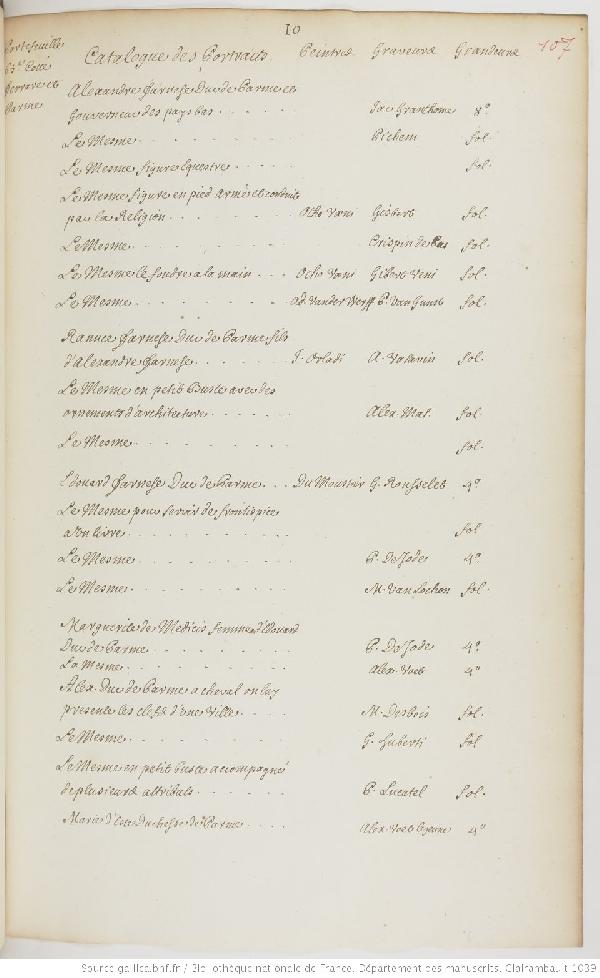 10
107
Portefeuille
63e Cotté
Ferrare et
Parme
Catalogue des Portraits. Peintres Graveures Grandeures
Alexandre Farnese Duc de Parme et
Gouverneur des pays bas . . . . . Jac Granthome 8º
Le Mesme . . . . . . . Pichem fol.
Le Mesme figure Equestre . . . . . fol.
Le Mesme figure en pied armé et
par la Religion . . . . . . Otho Væni Gisbert fol.
Le Mesme . . . . . . . Crispin de Pas fol.
Le Mesme le foudre a la main . . . Otho Væni Gisbert Veni fol.
Le Mesme . . . . . . . ad. Vander Werff P. Van Gunst fol.
Ranuce Farnese Duc de Parme fils
d'Alexandre Farnese . . . . . fol.
Le Mesme en petit Buste avec des
ornements d'architecture . . . . . Alex. Mat. fol.
Le Mesme . . . . . . . fol.
Edouard Farnese Duc de Parme . . . Du Moustier G. Rousselet 4º
Le Mesme pour servir de frontispice
a son livre . . . . . . . fol
Le Mesme . . . . . . . P. De Jode 4º
Le Mesme . . . . . . . M. Van Lochon fol.
Marguerite de Medicis femme d'Edouard
Duc de Parme . . . . . . P. De Jode 4º
La Mesme . . . . . . . Alex. Voet 4º
Alex. Duc de Parme a cheval on luy
presente les clefs d'une Ville . . . . M. Desbois fol.
Le Mesme . . . . . . . G. Huberti fol
Le Mesme en petit buste acompagné
de plusieurs attributs . . . . . P. Lucatel fol.
Marie d'Est Duchesse de Parme . . . . Alex. Voet le jeune 4º
Source gallica.bnf.fr / Bibliothèque nationale de France. Département des manuscrits. Clairambault 1039